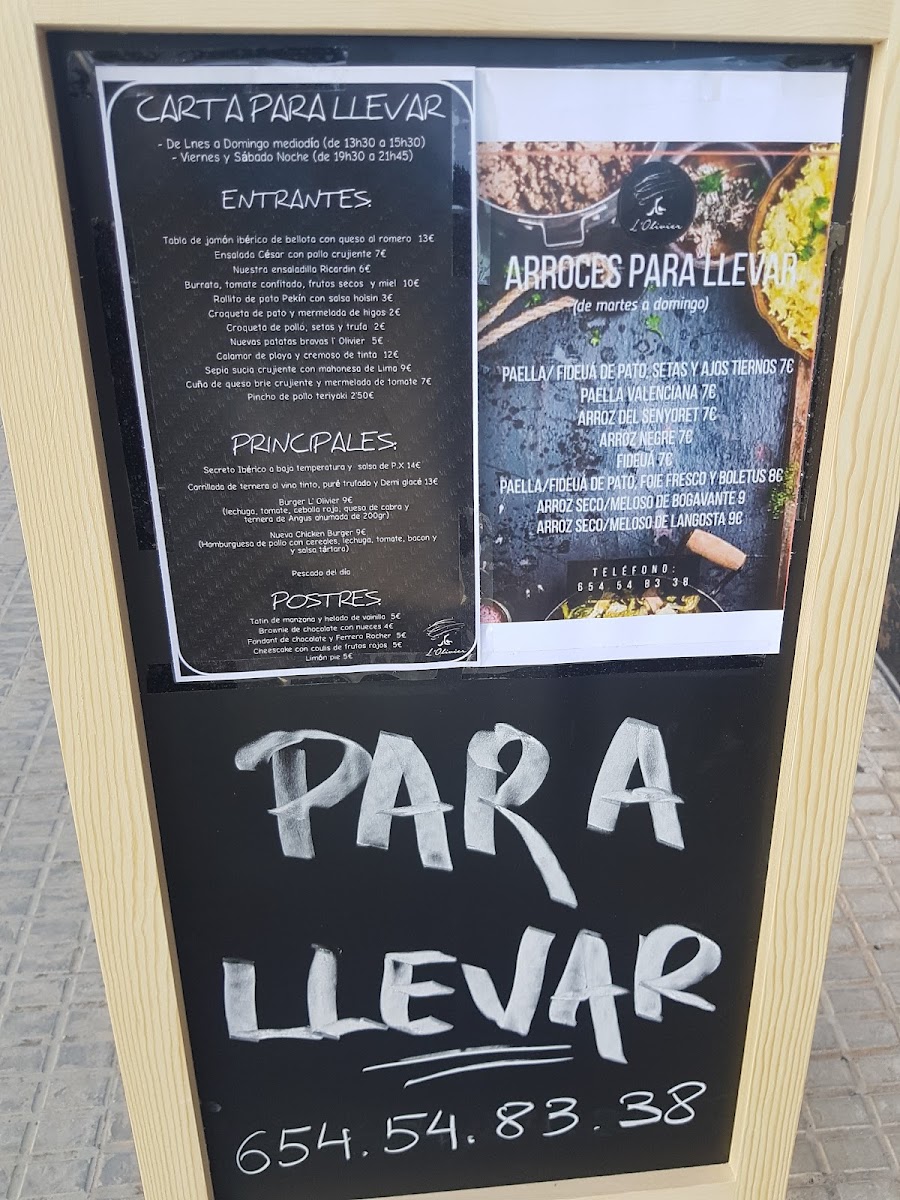 CARTA PARA LLEVAR
- De Lnes a Domingo mediodía (de 13h30 a 15h30)
- Viernes y Sábado Noche (de 19h30 a 21h45)
ENTRANTES:
Tabla de jamón ibérico de bellota con queso al romero 13€
Ensalada César con pollo crujiente 7€
Nuestra ensaladilla Ricardin 6€
Burrata, tomate confitado, frutos secos y miel 10€
Rollito de pato Pekín con salsa hoisin 3€
Croqueta de pato y mermelada de higos 2€
Croqueta de polló, setas y trufa 2€
Nuevas patatas bravas l' Olivier 5€
Calamar de playa y cremoso de tinta 12€
Sepia sucia crujiente con mahonesa de Lima 9€
Cuña de queso brie crujiente y mermelada de tomate 7€
Pincho de pollo teriyaki 2'50€
PRINCIPALES:
Secreto Ibérico a baja temperatura y salsa de P.X 14€
Carrillada de ternera al vino tinto, puré trufado y Demi glacé 13€
Burger L' Olivier 9€
(lechuga, tomate, cebolla roja, queso de cabra y
ternera de Angus ahumada de 200gr)
Nueva Chicken Burger 9€
(Hamburguesa de pollo con cereales, lechuga, tomate, bacon y
y salsa tártara)
Pescado del día
POSTRES:
Tatin de manzana y helado de vainilla 5€
Brownie de chocolate con nueces 4€
Fondant de chocolate y Ferrero Rocher 5€
Cheescake con coulis de frutos rojos 5€
Limón pie 5€
L'Olivier
L'Olivier
ARROCES PARA LLEVAR
(de martes a domingo)
PAELLA/ FIDEUÁ DE PATO, SETAS Y AJOS TIERNOS 7€
PAELLA VALENCIANA 7€
ARROZ DEL SENYORET 7€
ARROZ NEGRE 7€
FIDEUÁ 7€
PAELLA/FIDEUÁ DE PATO, FOIE FRESCO Y BOLETUS 8€
ARROZ SECO/MELOSO DE BOGAVANTE 9
ARROZ SECO/MELOSO DE LANGOSTA 9€
TELÉFONO:
654 54 83 38
PARA
LLEVAR
654.54.83.38